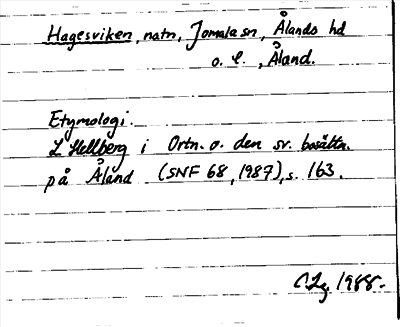 Hagesviken, natn, Jomala sn, Ålands hd
o. l., Åland.
Etymologi.
L Hellberg i Ortn. o. den sv. bosättn.
på Åland (SNF 68, 1987), s. 163.
1988.